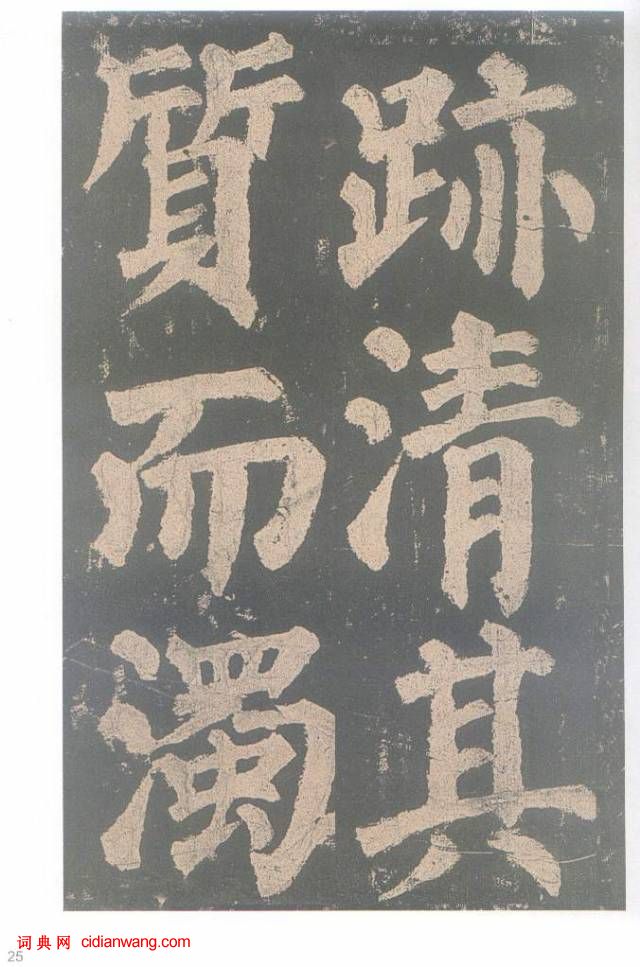 跡清其
質而濁
词典网 cidianwang.com
25